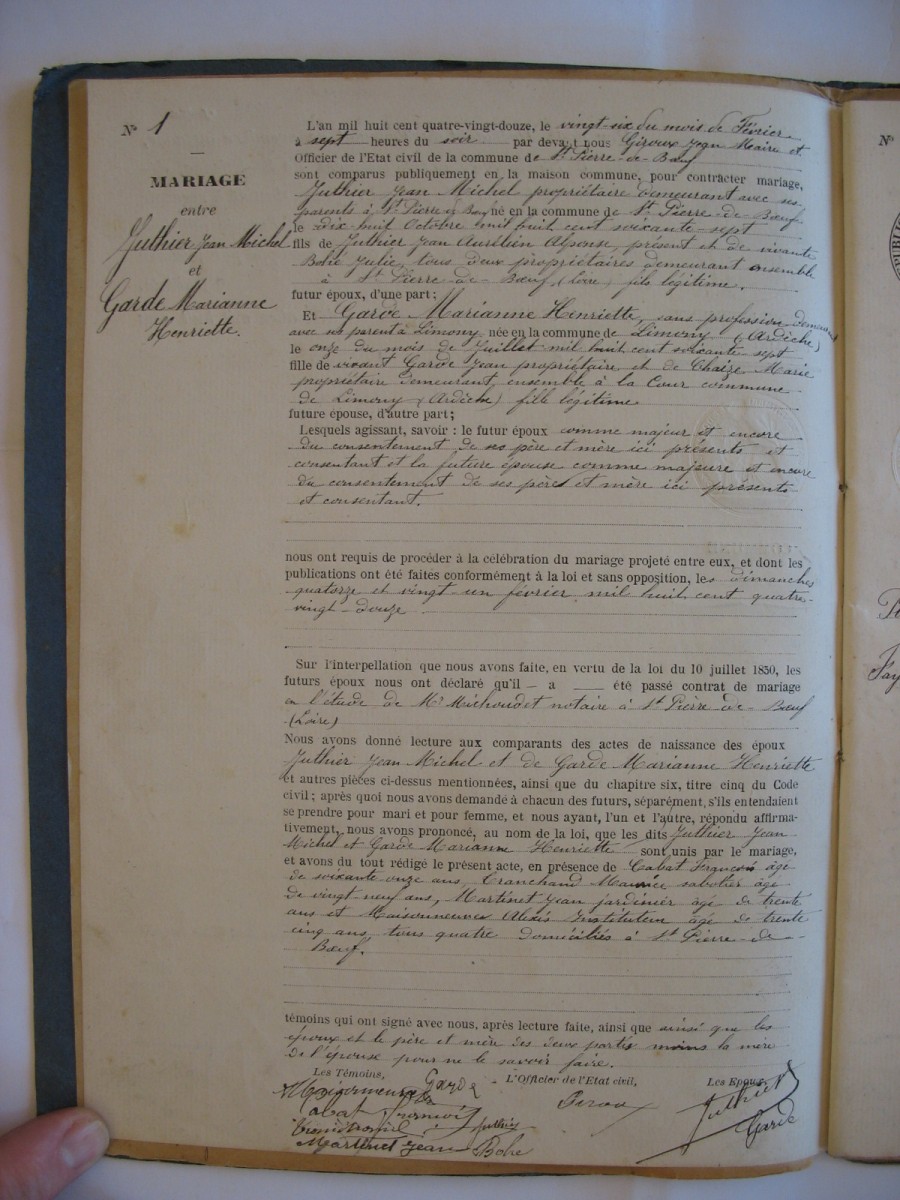 N° 1
MARIAGE
entre
Juthier Jean Michel
et
Garde Marianne
Henriette.
L'an mil huit cent quatre-vingt-douze, le vingt-six du mois de Février
à sept heures du soir par devant nous Giroux Jean Maire et
Officier de l'Etat civil de la commune de St Pierre de Bœuf
sont comparus publiquement en la maison commune, pour contracter mariage,
Juthier Jean Michel propriétaire demeurant avec ses
parents à St Pierre de Bœuf né en la commune de St Pierre-de-Bœuf
le dix huit Octobre mil huit cent soixante-sept
fils de Juthier Jean Aurélien Alponse, présent et de vivante
Bohé Julie, tous deux propriétaires demeurant ensemble
à St Pierre-de-Bœuf, (Loire) fils légitime.
futur époux, d'une part;
Et Garde Marianne Henriette, sans profession demeurant
avec ses parents à Limony née en la commune de Limony (Ardèche)
le onze du mois de Juillet mil huit cent soixante-sept
fille de vivant Garde Jean propriétaire et de Chaize Marie
propriétaire demeurant ensemble à la Cour commune
de Limony (Ardèche) fille légitime
future épouse, d'autre part;
Lesquels agissant, savoir : le futur époux comme majeur et encore
du consentement de ses père et mère ici présents et
consentant et la future épouse comme majeure et encore
du consentement de ses père et mère ici présents
et consentant.
nous ont requis de procéder à la célébration du mariage projeté entre eux, et dont les
publications ont été faites conformément à la loi et sans opposition, les dimanches
quatorze et vingt-un février mil huit cent quatre-
vingt-douze
Sur l'interpellation que nous avons faite, en vertu de la loi du 10 juillet 1850, les
futurs époux nous ont déclaré qu'il – a — été passé contrat de mariage
en l'étude de Me Michoudet notaire à St Pierre-de-Bœuf
(Loire)
Nous avons donné lecture aux comparants des actes de naissance des époux
Juthier Jean Michel et de Garde Marianne Henriette
et autres pièces ci-dessus mentionnées, ainsi que du chapitre six, titre cinq du Code
civil ; après quoi nous avons demandé à chacun des futurs, séparément, s'ils entendaient
se prendre pour mari et pour femme, et nous ayant, l'un et l'autre, répondu affirma-
tivement, nous avons prononcé, au nom de la loi, que les dits Juthier Jean
Michel et Garde Marianne Henriette sont unis par le mariage,
et avons du tout rédigé le présent acte, en présence de Cabat François âgé
de soixante onze ans, Tranchand Maurice sabotier âgé
de vingt-neuf ans, Martinet Jean jardinier âgé de trente
ans et Maisonneuve Alexis Instituteur âgé de trente
cinq ans, tous quatre domiciliés à St Pierre-de-
Bœuf.
témoins qui ont signé avec nous, après lecture faite, ainsi que ainsi que les
époux et le père et mère des deux parties moins la mère
de l'épouse pour ne le savoir faire.
Les Témoins, Garde L'Officier de l'Etat civil, Les Epoux,
Maisonneuve Giroux Juthier
Cabat françois Juthier Garde
Martinet Jean Bohé
N°